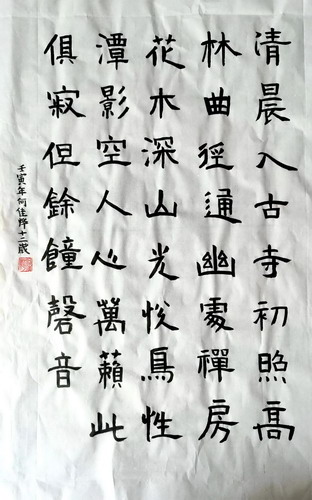 清晨入古寺初照高
林曲徑通幽處禪房
花木深山光悅鳥性
潭影空人心萬籟此
俱寂但餘鐘磬音
壬寅年何佳燁十二歲